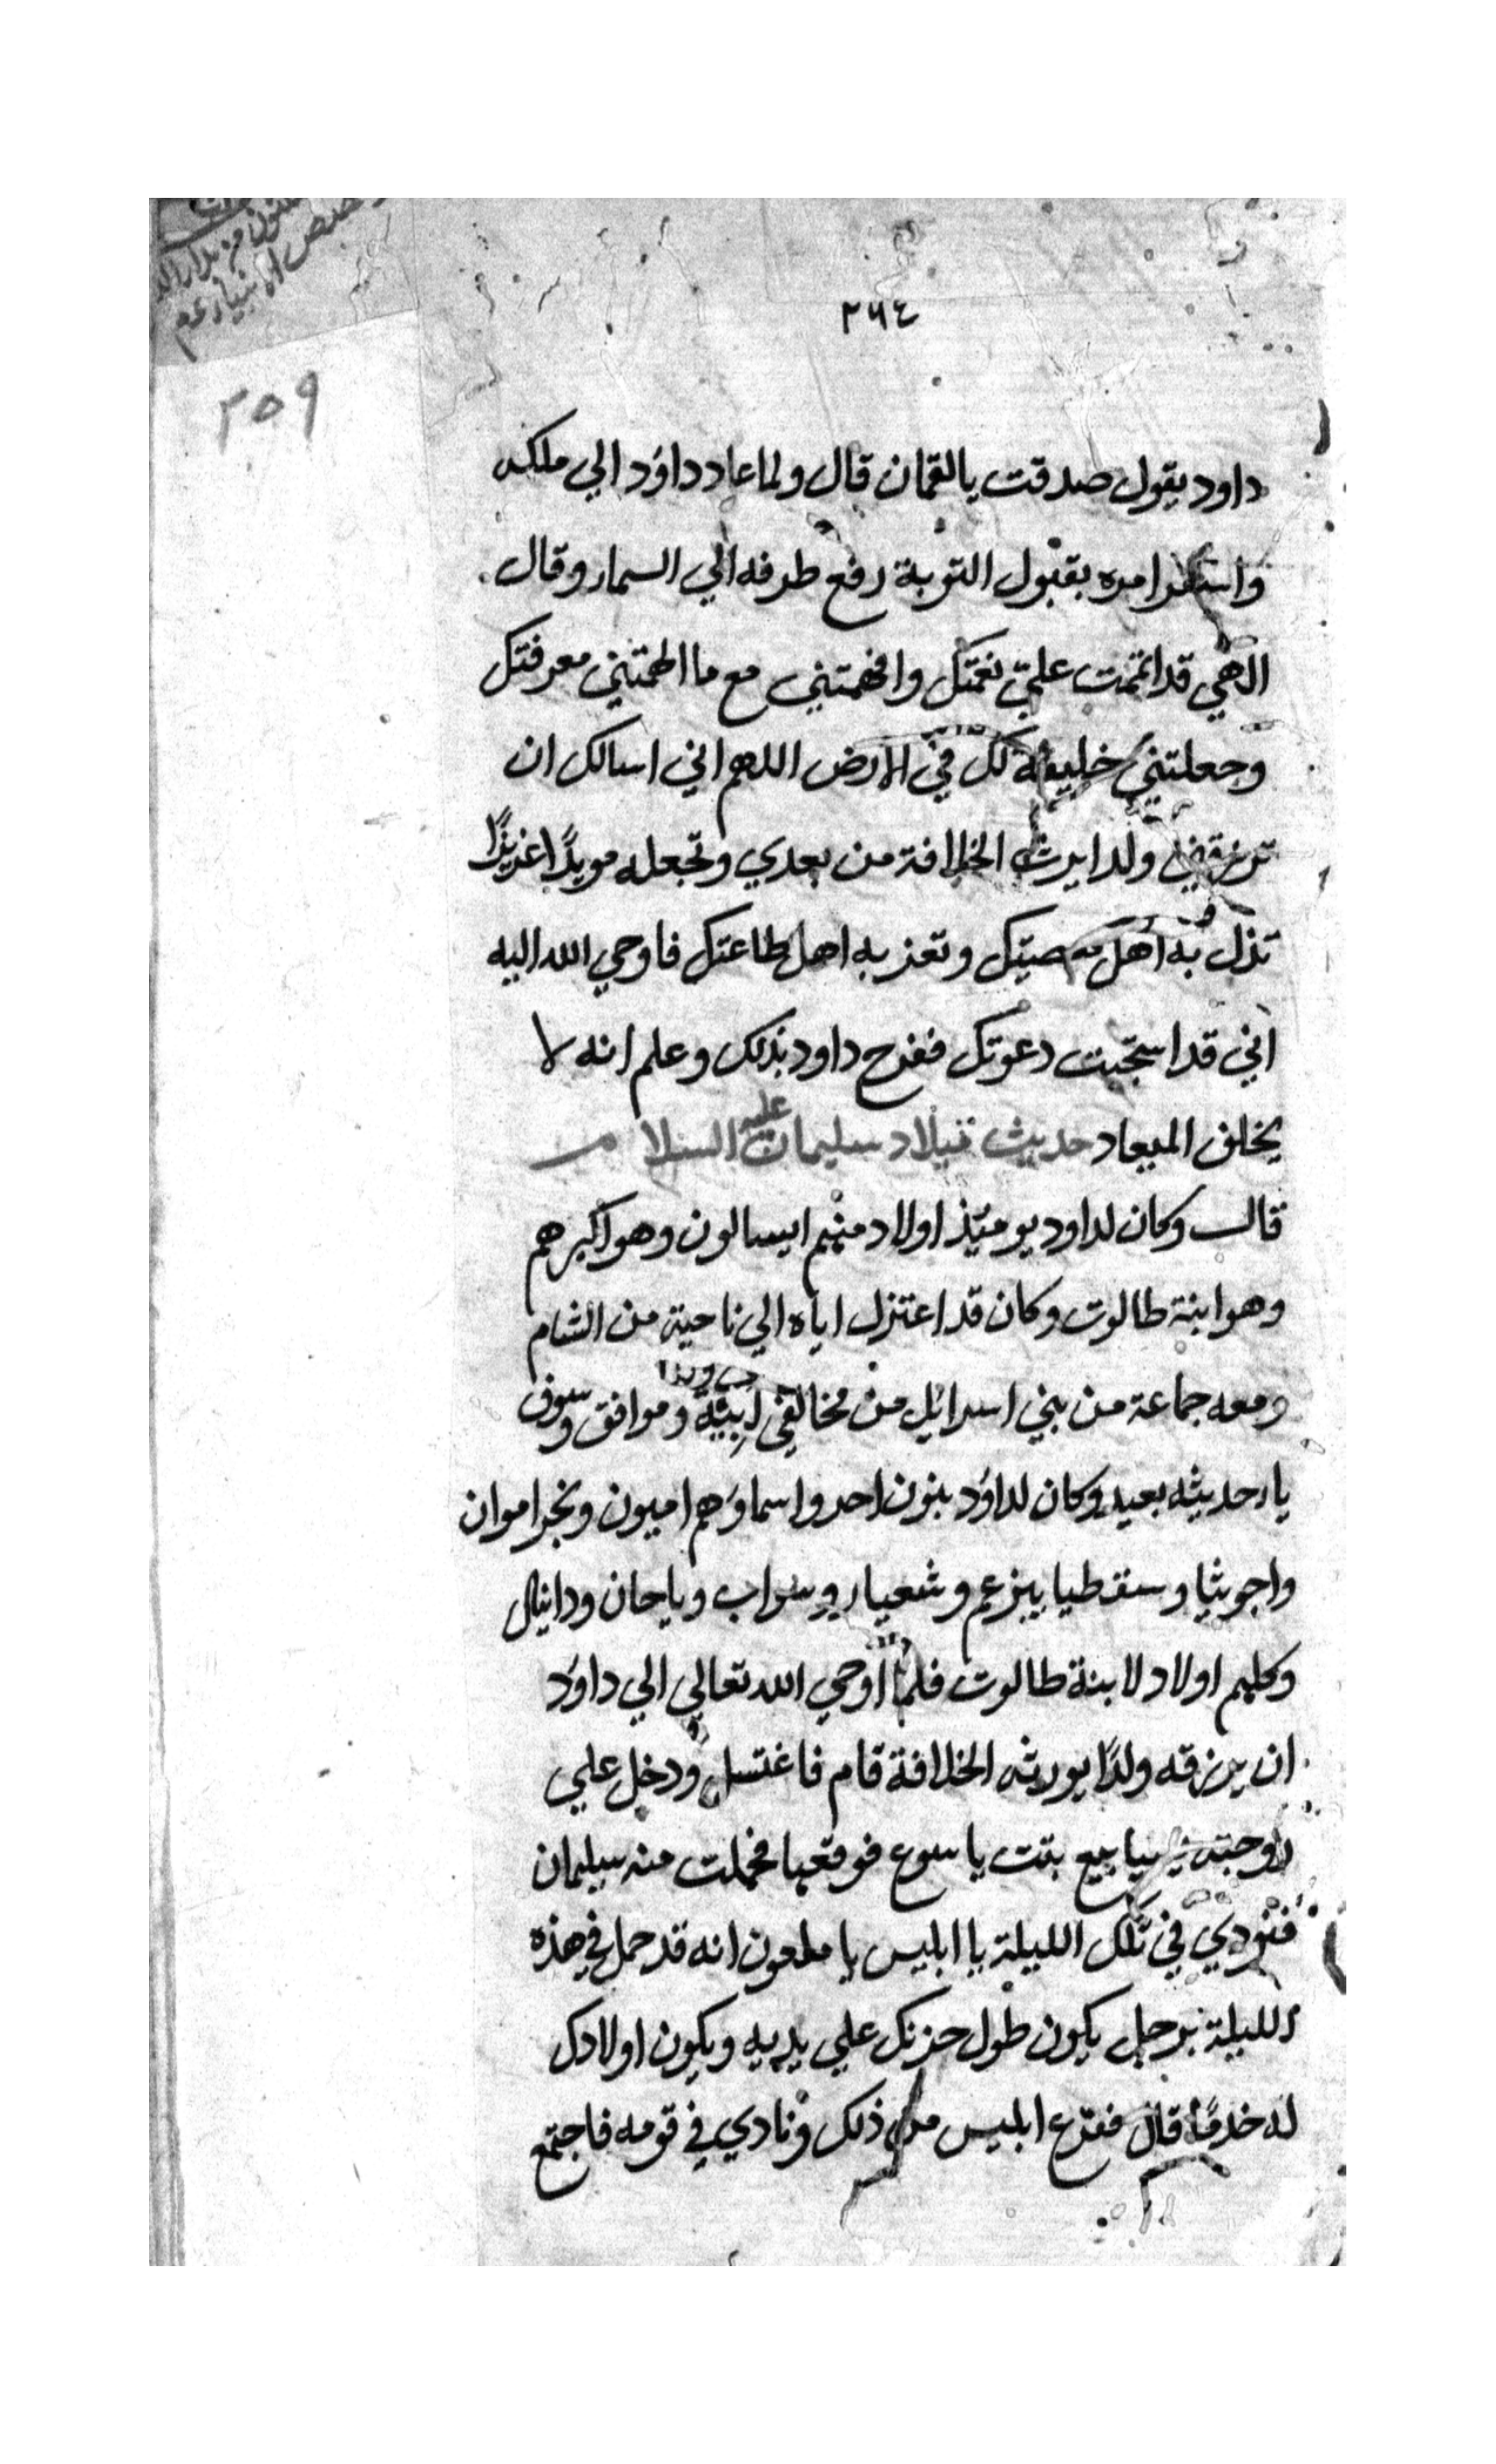 ٢٦٤
٢٥٩
داود يقول صدقت يالقمان قال ولما عاد داود الي ملكه
امره بقبول التوبة رفع طرفه الي السمار وقال
الهي قد اتممت علي نعمتك وافهمتني مع ما الهمتني معرفتك
وجعلتني خليفة لك في الارض اللهم اني اسالك ان
ترزقني ولدا يرث الخلافة من بعدي وتجعله مويدًا عزيزًا
تذل به اهل معصيتك وتعز به اهل طاعتك فاوحي الله اليه
اني قد استجبت دعوتك ففرح داود بذلك وعلم انه لا
يخلف الميعاد حديث ميلاد سليمان عليه السلام
قال وكان لداود يومئذ اولاد منهم ايسالون وهو اكبرهم
وهو ابنة طالوت وكان قد اعتزل اباه الي ناحية من الشام
ومعه جماعة من بني اسرائل من مخالفي ابيه وموافق وسوف
يا رحديثه بعيد وكان لداوٗد بنون احد واسماوٗهم اميون ونجراموان
وشعيا وياحان ودانيال
وكلهم اولاد لابنة طالوت فلما اوحي الله تعالي الي داوٗد
ان يرزقه ولدًا يورثه الخلافة قام فاغتسل ودخل علي
زوجته بنت ياسوع فوقعها فحملت منه سيلمان
فنودي في تلك الليلة يا ابليس يا ملعون انه قد حمل في هذه
الليلة برجل يكون طول حزنك علي يديه ويكون اولادك
له خدمًا قال ففزع ابليس من ذلك ونادي في قومه فاجتمع